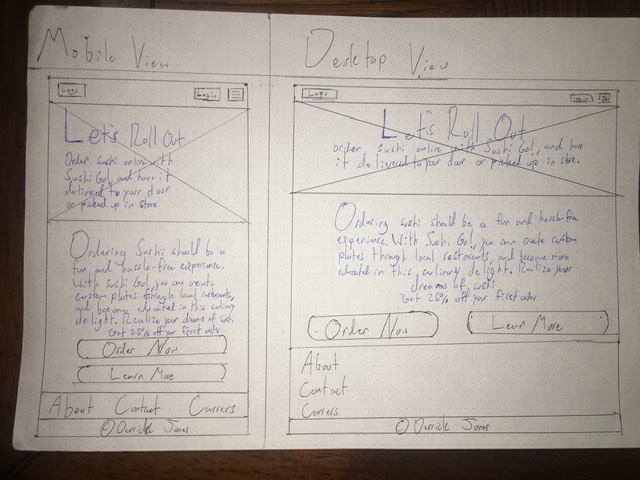 Mobile View
Logo
Login
Let's Roll Out
Order sushi online with
Sushi Go!, and have it
delivered to your door
or picked up in store
Ordering Sushi should be a
fun and hassle-free experience.
With Sushi Go!, you can create
custom plates through local restorants,
and become educated in this culinary
delight. Realize your dreams of sushi
*Get 25% off your first order
Order Now
Learn More
About Contact Carrers
© Derrick Jones
Desktop View
Logo
Login
Let's Roll Out
Order sushi online with Sushi Go!, and have
it delivered to your door or picked up in store.
Ordering sushi should be a fun and hassle-free
experience. With Sushi Go!, you can create custom
plates through local restorants, and become more
educated in this culinary delight. Realize your
dreams of sushi
*Get 25% off your first order
Order Now
Learn More
About
Contact
Carrers
© Derrick Jones